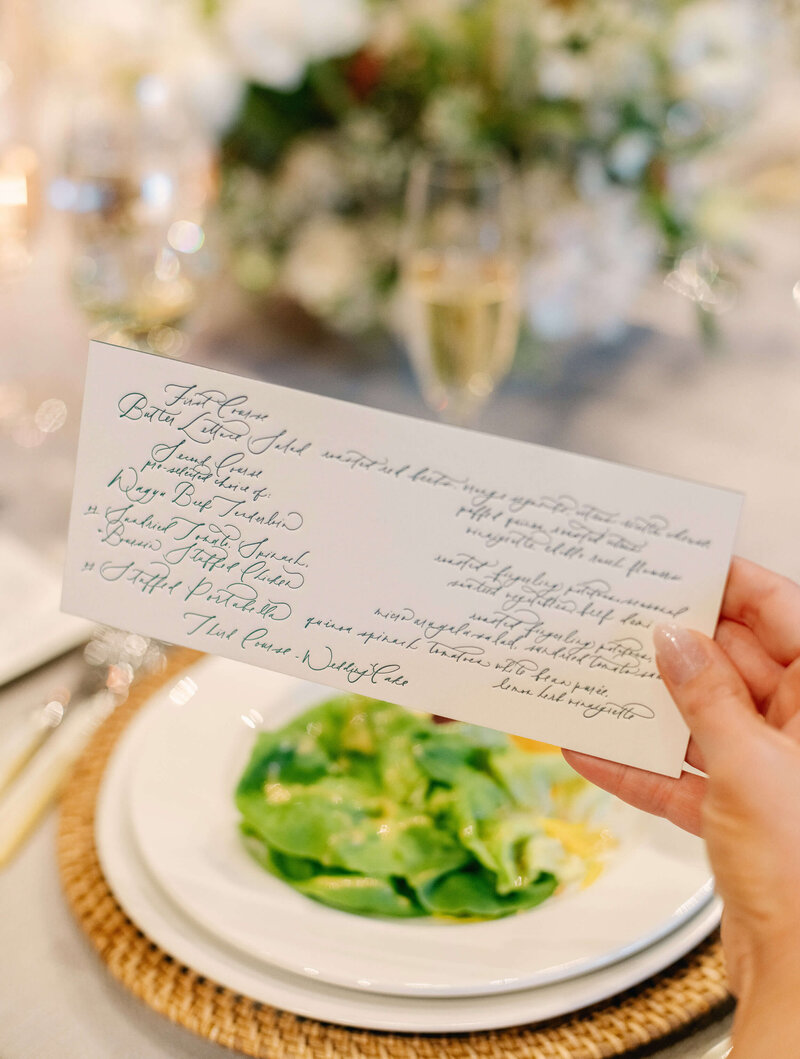 First Course
Butter Lettuce Salad roasted red beets,
puffed quinoa, roasted
vinaigrette edible flowers
Second Course
pre-selected choice of:
Wagyu Beef Tenderloin
roasted fingerling potatoes, seasonal
sautéed vegetables, beef demi
or Sundried Tomato, Spinach,
Boursin Stuffed Chicken
roasted fingerling potatoes,
micro arugula salad, sundried tomato
or Stuffed Portabella
quinoa, spinach, tomatoes, white bean purée,
lemon herb vinaigrette
Third Course - Wedding Cake